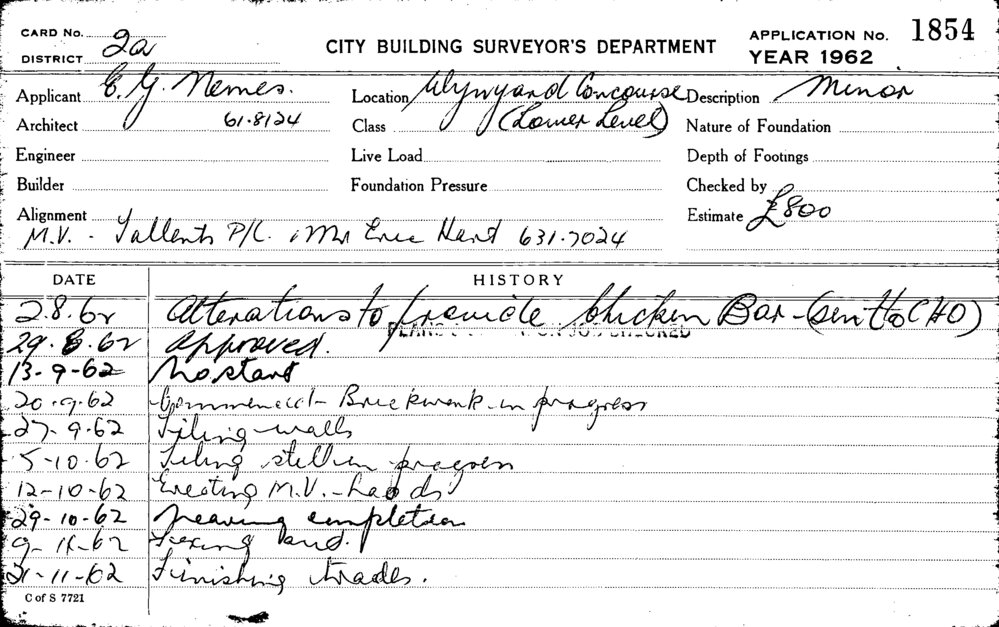 CARD No. 2a
DISTRICT
CITY BUILDING SURVEYOR'S DEPARTMENT
APPLICATION No. 1854
YEAR 1962
Applicant E. G. Nemes.
Location Wynyard Concourse
Description Minor
Architect 61.8124
Class (Lower Level)
Nature of Foundation
Engineer
Live Load
Depth of Footings
Builder
Foundation Pressure
Checked by
Alignment
Estimate £800
M.V. - Tallents P/L. Mr Eric Hart 631.7024
DATE HISTORY
2.8.62 Alterations to provide Chicken Bar - (sent to CHO)
PLANS ON JOB CHECKED
29.8.62 Approved.
13-9-62 No start
20.9.62 Commenced - Brickwork in progress
27-9-62 Tiling walls
5-10-62 Tiling still in progress
12-10-62 Erecting M.V. - hoods
29-10-62 Nearing completion
9-11-62 Fixing
21-11-62 Finishing trades.
C of S 7721